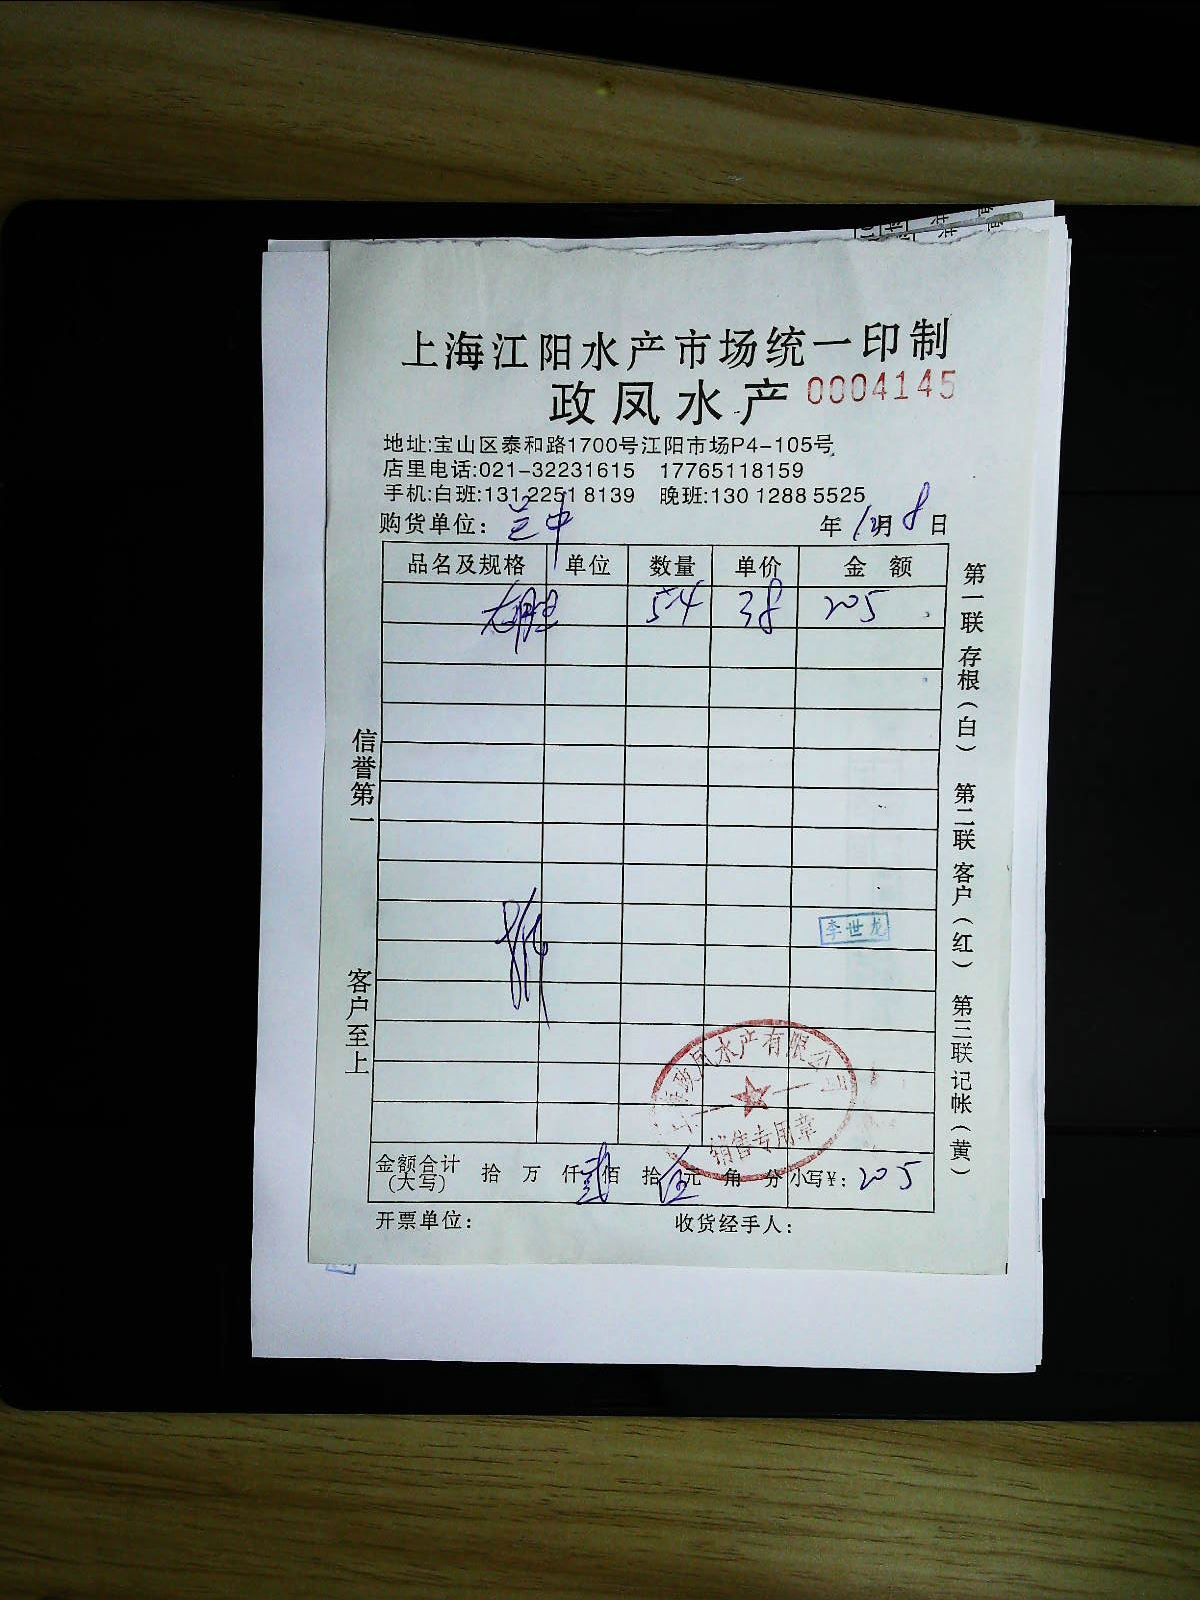 上海江阳水产市场统一印制
政凤水产 0004145
地址:宝山区泰和路1700号江阳市场P4-105号
店里电话:021-32231615 17765118159
手机:白班:131 2251 8139 晚班:130 1288 5525
购货单位: 兰中 年 12月 8日
品名及规格 单位 数量 单价 金额
54 38 205
信誉第一
客户至上
第一联 存根(白) 第二联 客户(红) 第三联 记帐(黄)
李世龙
政凤水产有限公司
销售专用章
金额合计(大写) 拾 万 仟 贰佰 拾 伍元 角 分 小写¥: 205
开票单位: 收货经手人: